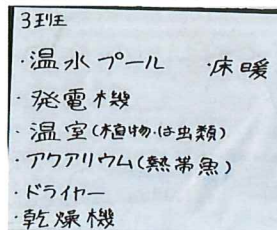 3班
・温水プール ・床暖
・発電機
・温室(植物・は虫類)
・アクアリウム(熱帯魚)
・ドライヤー
・乾燥機